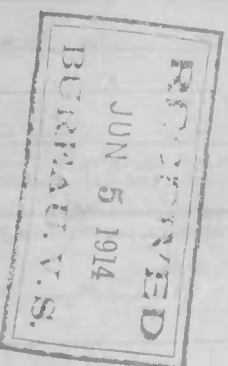 RECEIVED
JUN 5 1914
BUREAU. V. S.